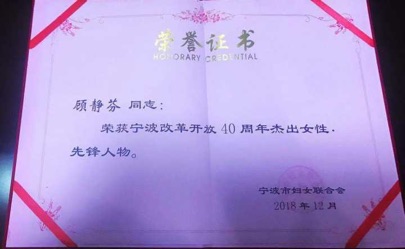 荣誉证书
HONORARY CREDENTIAL
顾静芬 同志：
荣获宁波改革开放 40 周年杰出女性·
先锋人物。
宁波市妇女联合会
2018 年 12 月